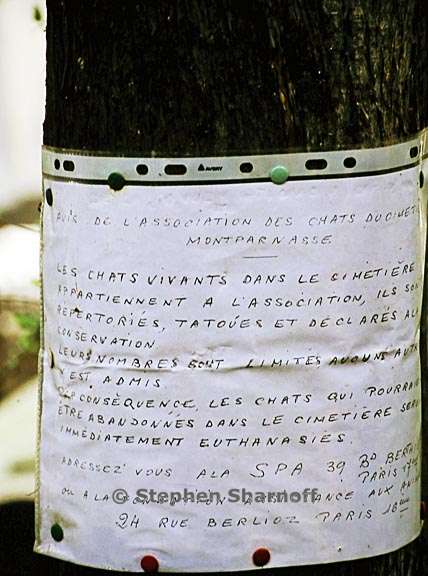 AVERY
AVIS DE L'ASSOCIATION DES CHATS DU CIMET
MONTPARNASSE
LES CHATS VIVANTS DANS LE CIMETIÈRE
APPARTIENNENT A L'ASSOCIATION, ILS SON
RÉPERTORIÉS, TATOUÉS ET DÉCLARÉS A LA
CONSERVATION
LEURS NOMBRES SONT LIMITÉS AUCUNS AUTR
N'EST ADMIS
CONSÈQUENCE, LES CHATS QUI POURRAI
ETRE ABANDONNÉS DANS LE CIMETIÈRE SERO
IMMÉDIATEMENT EUTHANASIÉS.
ADRESSEZ VOUS A LA SPA 39 BD BERTH
PARIS 17
OU A LA AUX
© Stephen Sharnoff
24 RUE BERLIOZ PARIS 18